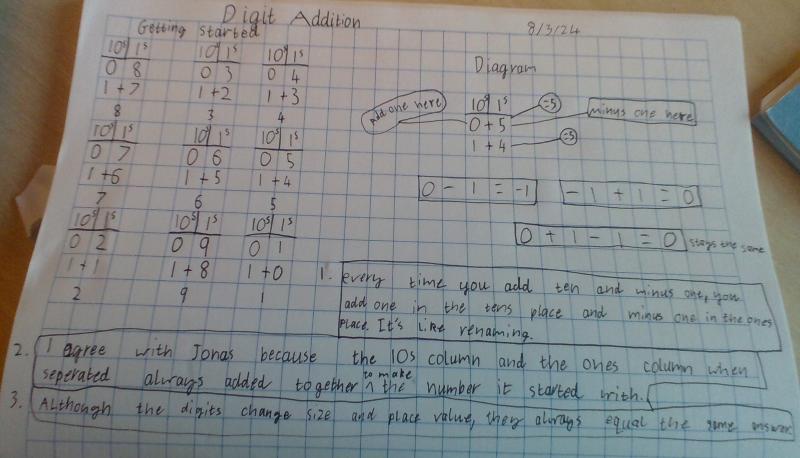 Digit Addition
Getting started
8/3/24
10s 1s 10s 1s 10s 1s
0 8 0 3 0 4
1+7 1+2 1+3
8 3 4
10s 1s 10s 1s 10s 1s
0 7 0 6 0 5
1+6 1+5 1+4
7 6 5
10s 1s 10s 1s 10s 1s
0 2 0 9 0 1
1+1 1+8 1+0
2 9 1
Diagram
Add one here
10s 1s
0+5
1+4
=5
=5
minus one here
0 - 1 = -1
-1 + 1 = 0
0 + 1 - 1 = 0 stays the same
1. every time you add ten and minus one, you
add one in the tens place and minus one in the ones
place. It's like renaming.
2. I agree with Jonas because the 10s column and the ones column when
seperated always added together to make the number it started with.
3. Although the digits change size and place value, they always equal the same answer